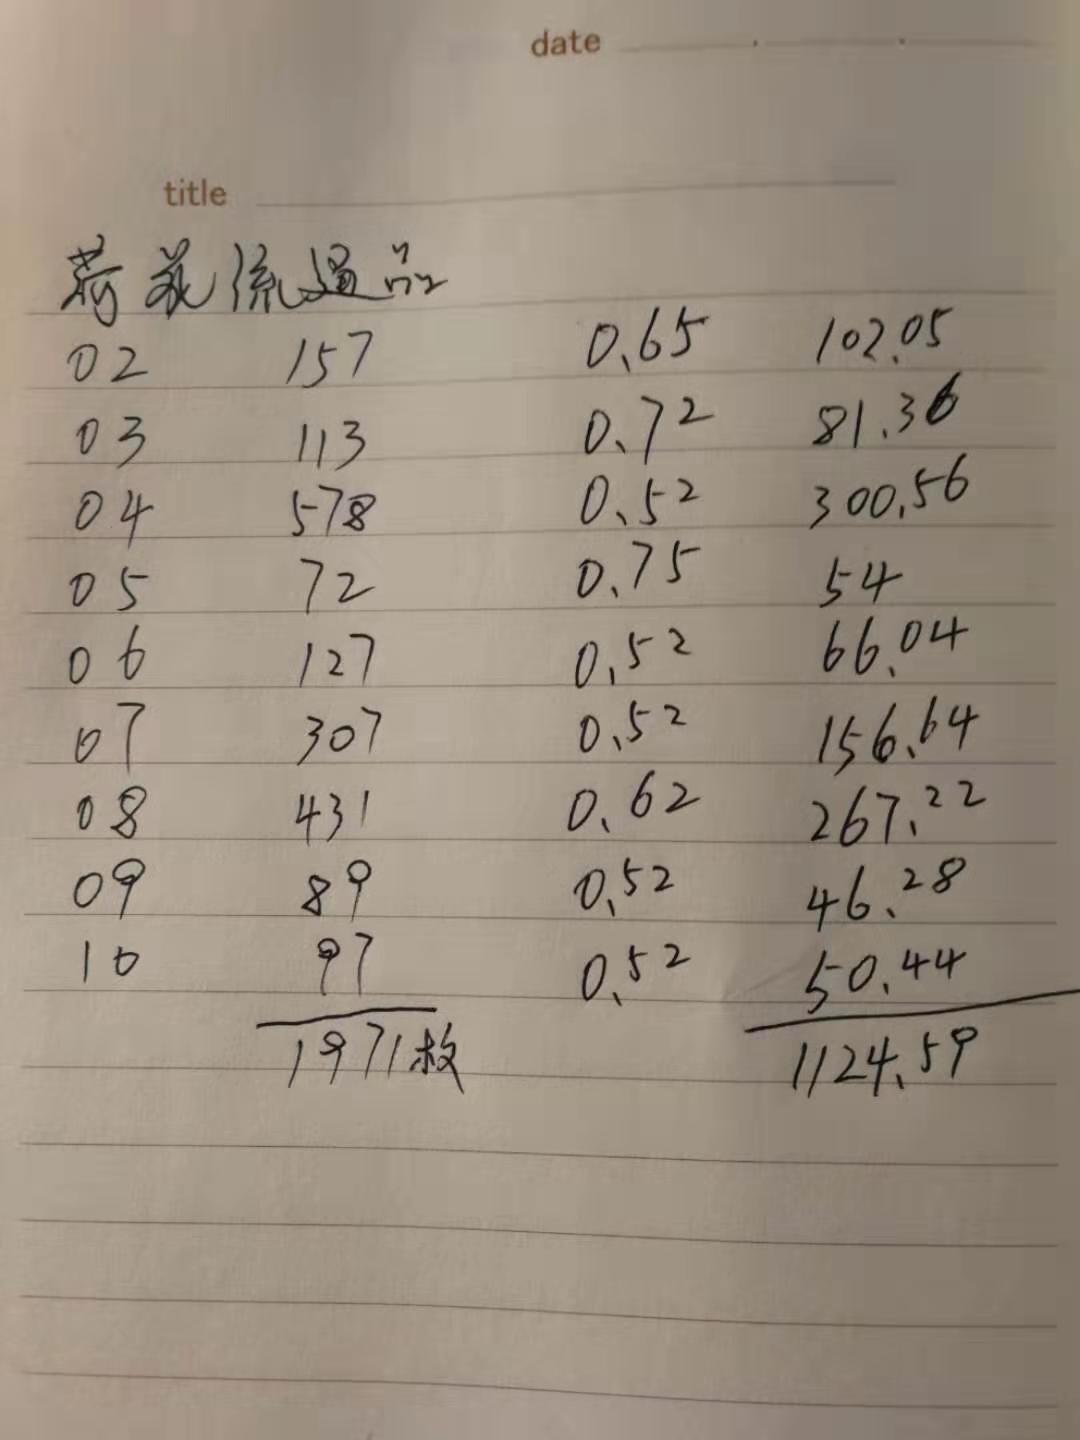 date
title
荷花流通品
02 157 0.65 102.05
03 113 0.72 81.36
04 578 0.52 300.56
05 72 0.75 54
06 127 0.52 66.04
07 307 0.52 156.64
08 431 0.62 267.22
09 89 0.52 46.28
10 97 0.52 50.44
1971枚 1124.59